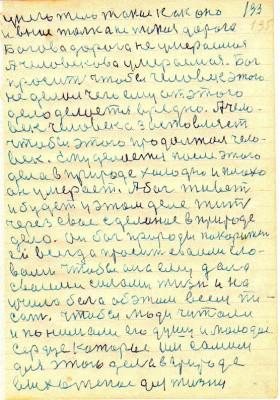 такое как оно 193
135
дорога
Богова дорога не умераемая
А человекова умераемая. Бог
просит чтобы человек этого
не делал чего ему от этого
дела делается вредно. А чело-
век человека заставляет
чтобы этого продолжал чело-
век. Ему делается после этого
дела в природе холодно и плохо
он умерает. А бог живет
и будет у этом деле жить
через свое сделаное в природе
дело. Он бог природы
всегда просит своими сло-
вами чтобы она ему дала
своими силами жизни и на
учила бога об этом всем пи-
сать. чтобы люди читали
и понимали его душу и молодое
сердце которое им самим
для этого дела в природе
для жизни